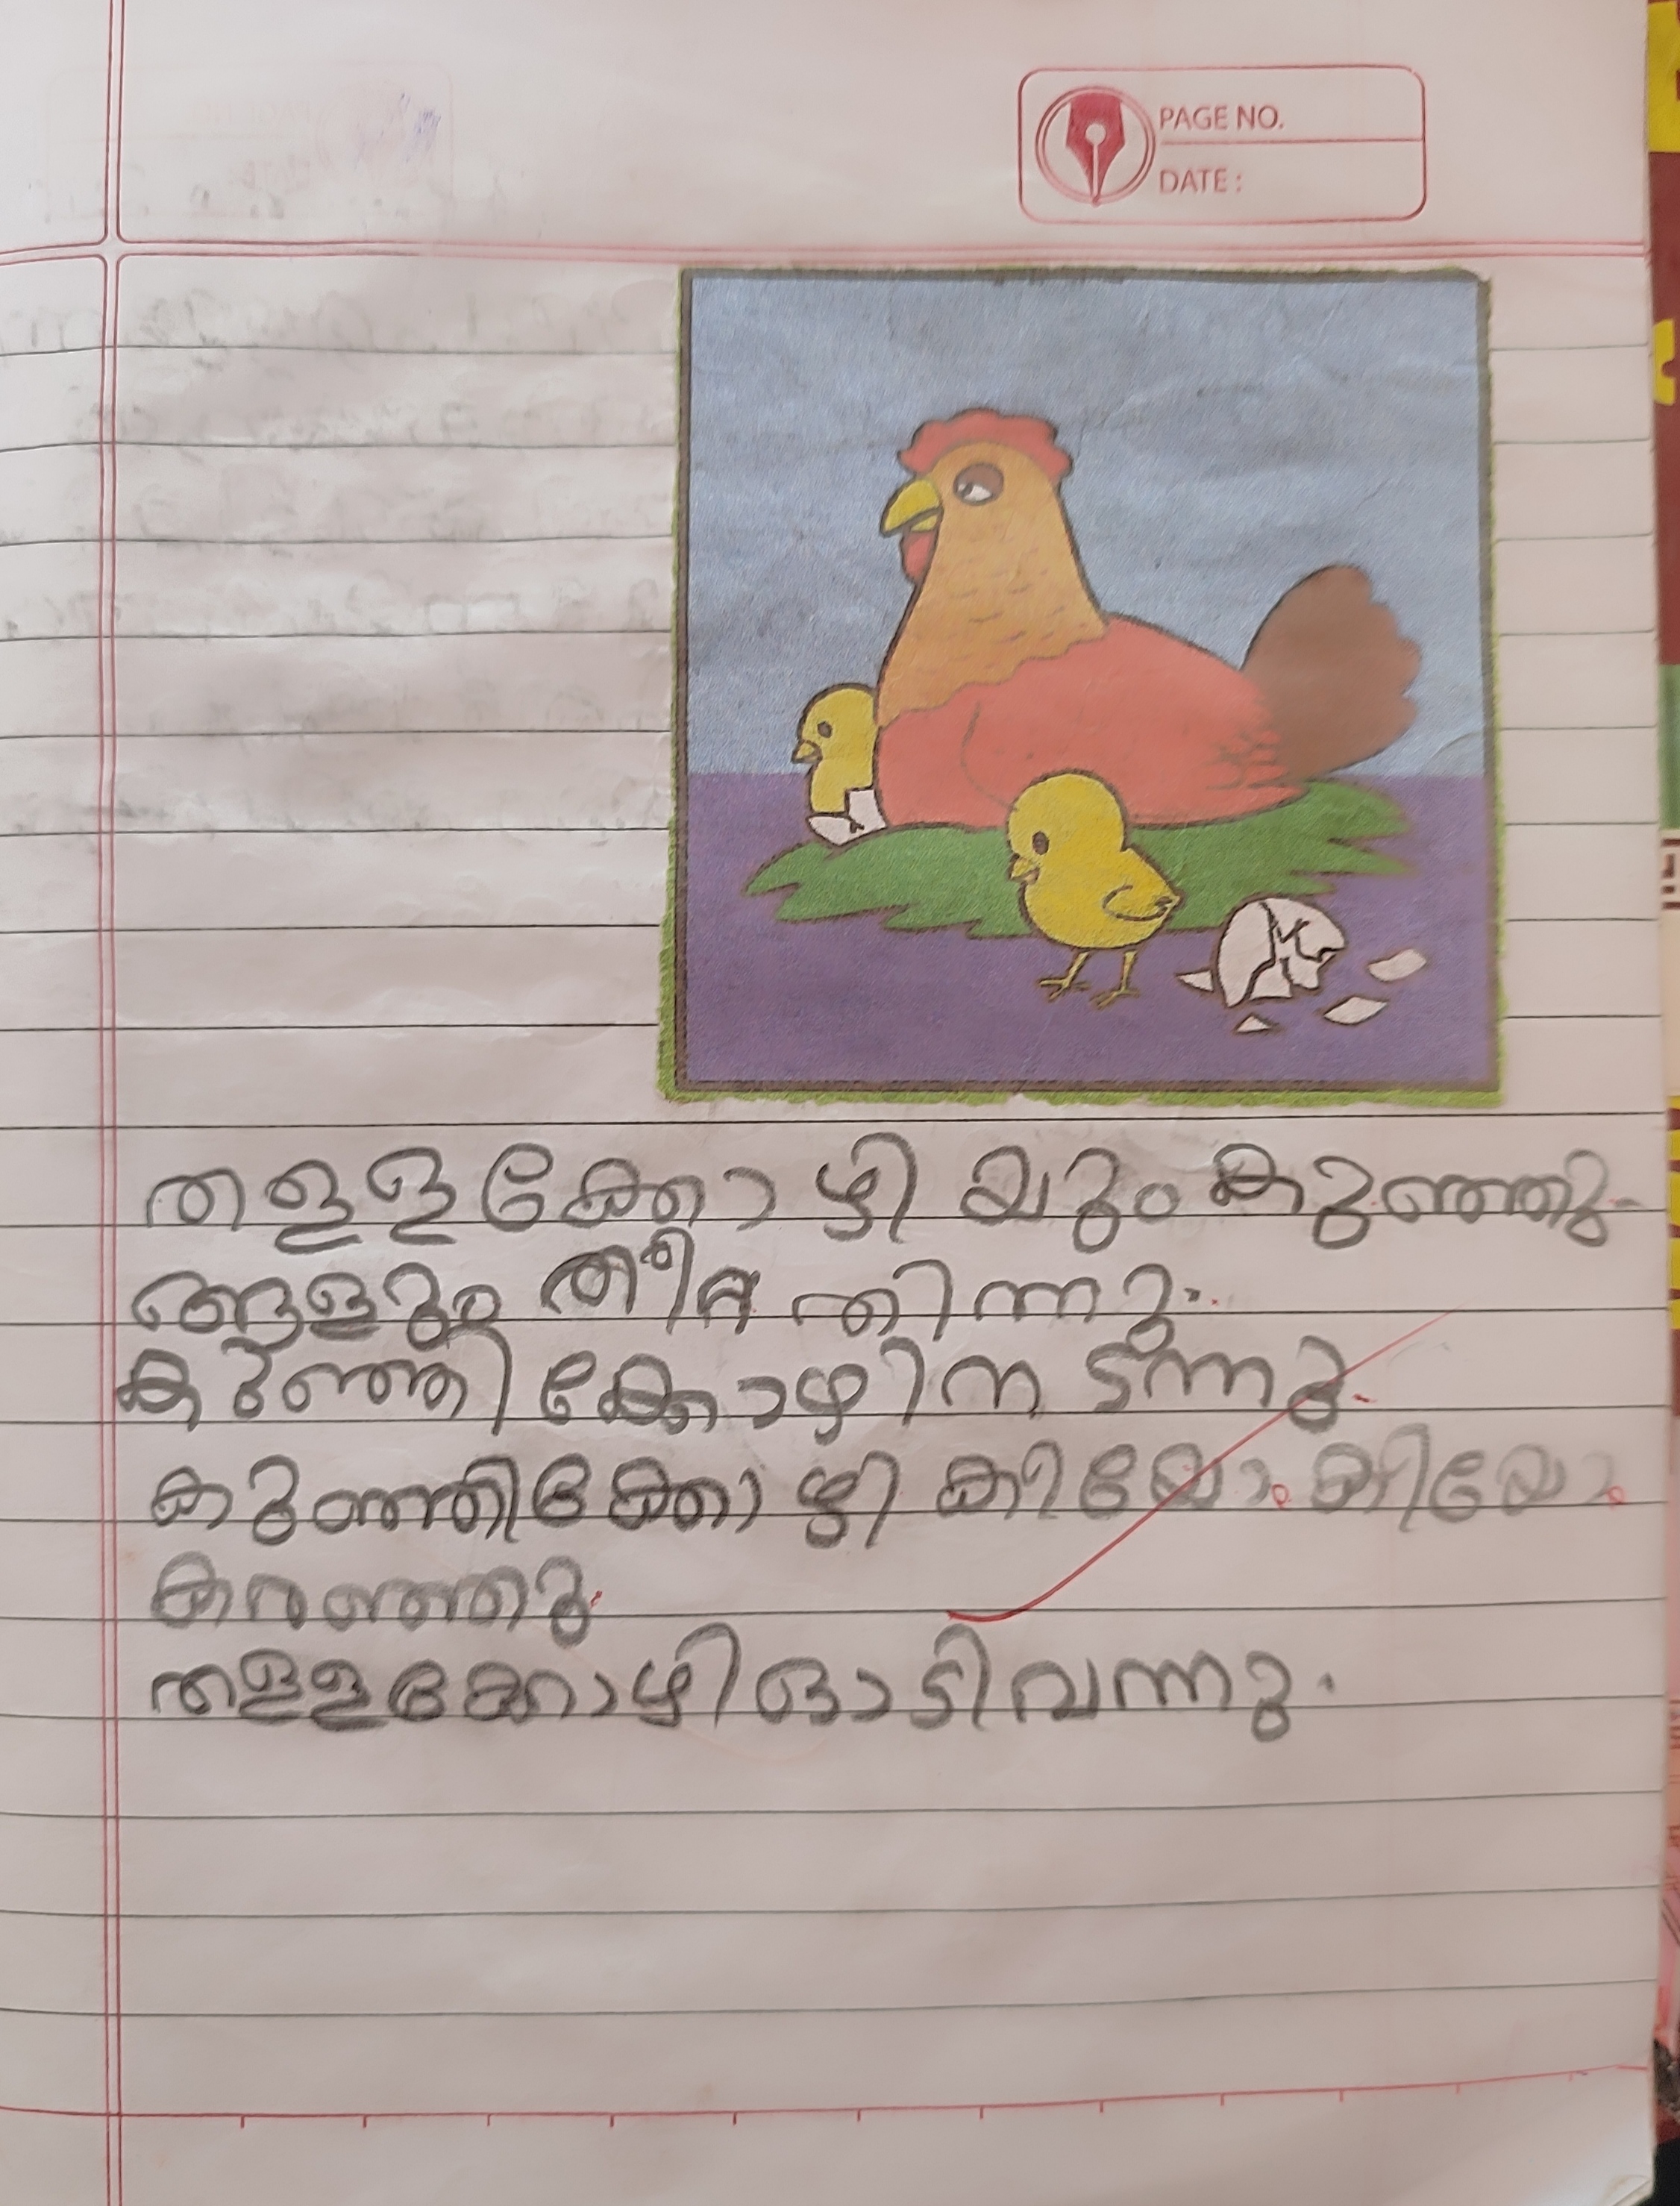 PAGE NO.
DATE :
തള്ളക്കോഴിയും കുഞ്ഞു-
ങ്ങളും തീറ്റ തിന്നു.
കുഞ്ഞിക്കോഴി നടന്നു.
കുഞ്ഞിക്കോഴി കിയോം കിയോം
കരഞ്ഞു.
തള്ളക്കോഴി ഓടി വന്നു.